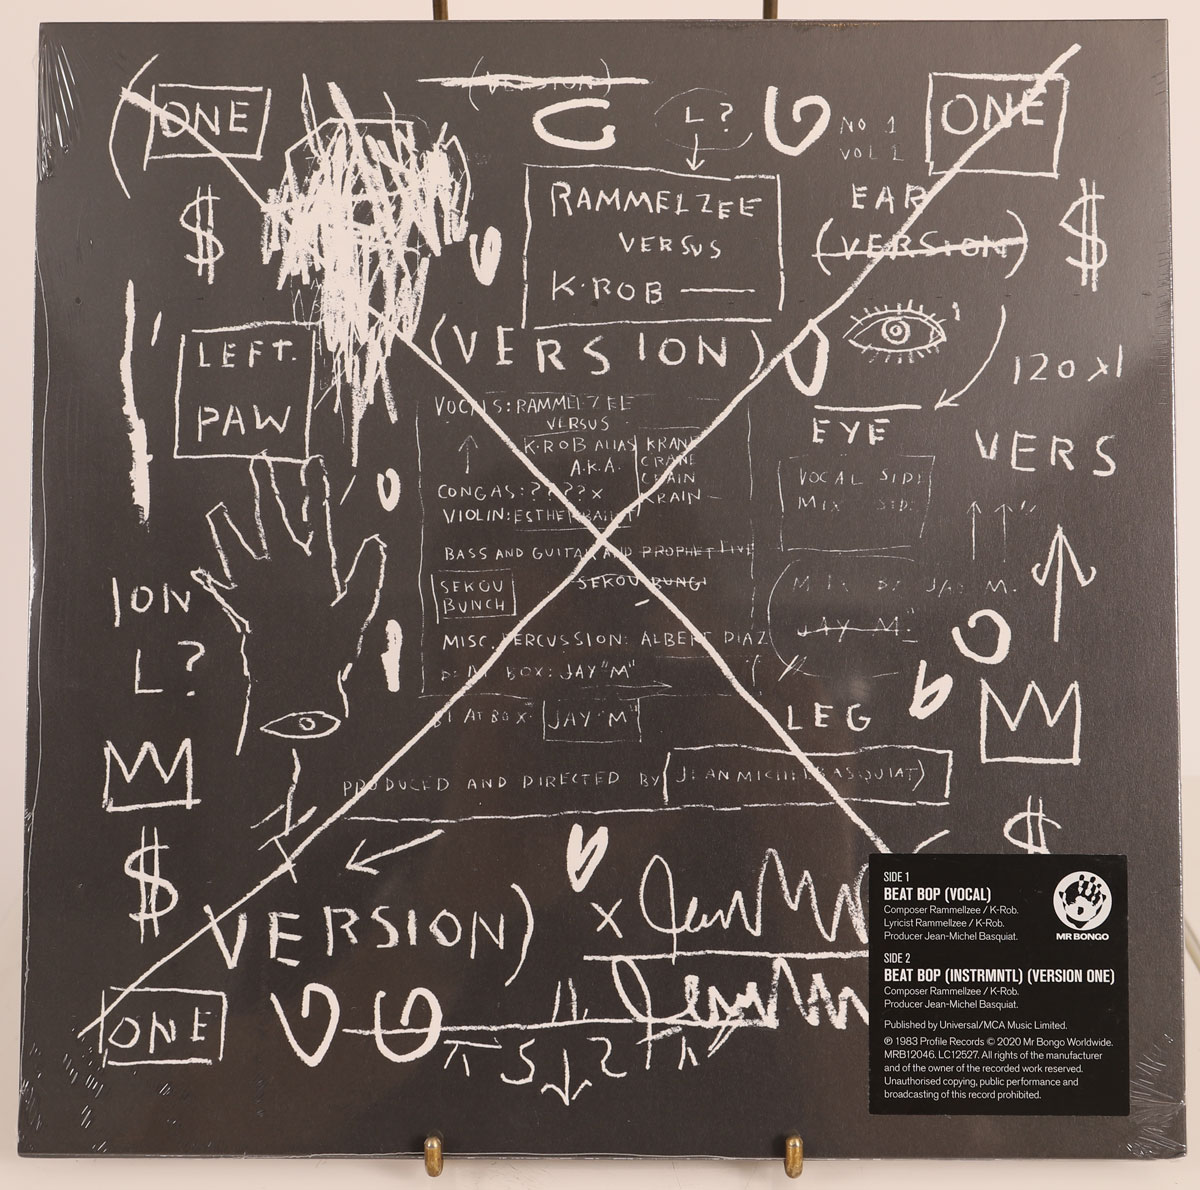 (VERSION)
(ONE
L ?
NO 1
VOL 1
ONE
$
RAMMELZEE
VERSUS
K·ROB
EAR
(VERSION)
$
LEFT.
PAW
(VERSION)
120 X1
VOCALS: RAMMELZEE
VERSUS
K·ROB ALIAS
A.K.A.
KRANE
CRANE
CRAIN
KRAIN
CONGAS: ????X
VIOLIN: ESTHER
EYE
VERS
VOCAL SIDE
MIX SID.
BASS AND GUITAR AND PROPHET FIVE
SEKOU
BUNCH
SEKOU
MISC. PERCUSSION: ALBERT DIAZ
BOX: JAY "M"
BEAT BOX: JAY "M"
MIX BY JAY M.
JAY M.
ION
L?
LEG
PRODUCED AND DIRECTED BY JEAN MICHEL BASQUIAT)
$
$
VERSION)
X
ONE
SIDE 1
BEAT BOP (VOCAL)
Composer Rammellzee / K-Rob.
Lyricist Rammellzee / K-Rob.
Producer Jean-Michel Basquiat.
MR BONGO
SIDE 2
BEAT BOP (INSTRMNTL) (VERSION ONE)
Composer Rammellzee / K-Rob.
Producer Jean-Michel Basquiat.
Published by Universal/MCA Music Limited.
℗ 1983 Profile Records © 2020 Mr Bongo Worldwide.
MRB12046. LC12527. All rights of the manufacturer
and of the owner of the recorded work reserved.
Unauthorised copying, public performance and
broadcasting of this record prohibited.